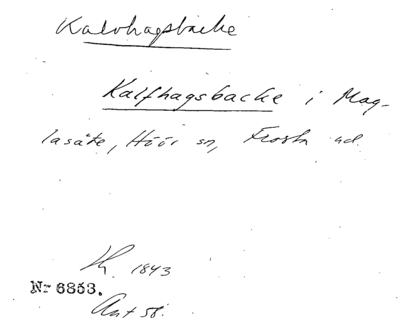 Kalvhagsbacke
Kalfhagsbacke i Mag-
lasäte, Höör sn, Frosta hd
1843
Nr 6853.
Ant 58.